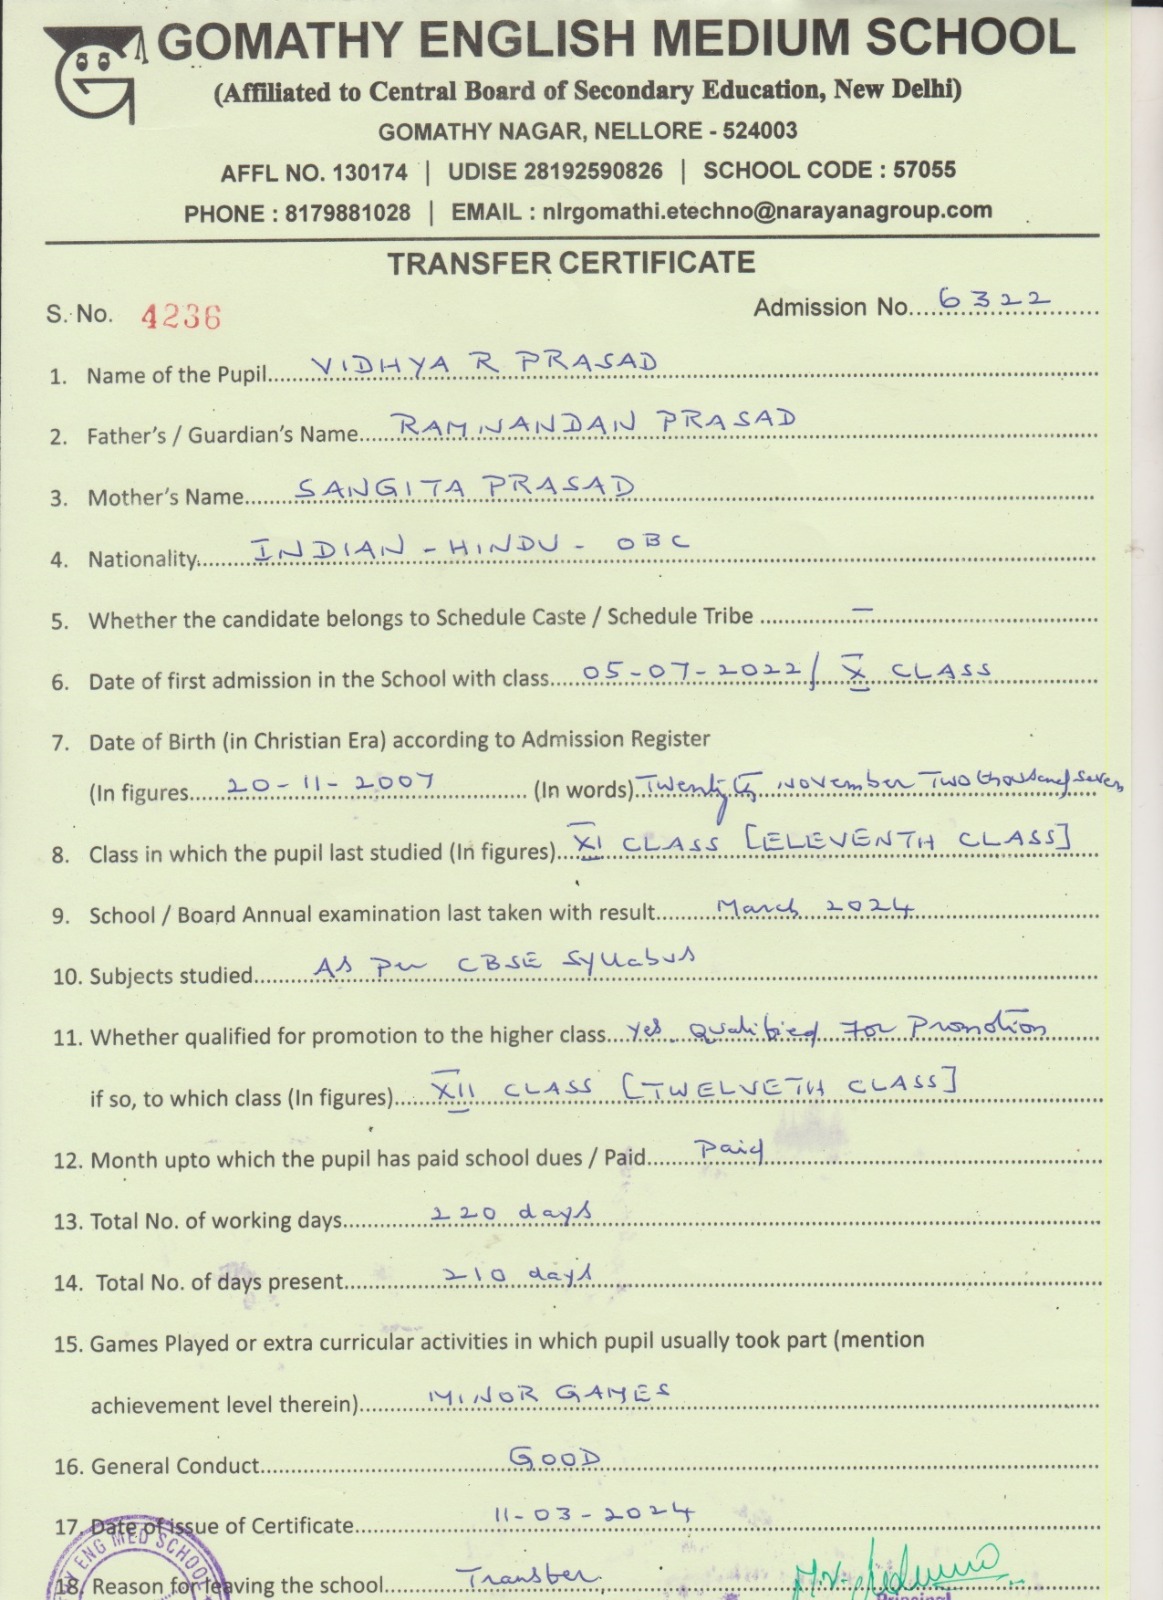 GOMATHY ENGLISH MEDIUM SCHOOL
(Affiliated to Central Board of Secondary Education, New Delhi)
GOMATHY NAGAR, NELLORE - 524003
AFFL NO. 130174 | UDISE 28192590826 | SCHOOL CODE : 57055
PHONE : 8179881028 | EMAIL : nlrgomathi.etechno@narayanagroup.com
TRANSFER CERTIFICATE
S. No. 4236 Admission No. 6322
1. Name of the Pupil VIDHYA R PRASAD
2. Father's / Guardian's Name RAMNANDAN PRASAD
3. Mother's Name SANGITA PRASAD
4. Nationality INDIAN - HINDU - OBC
5. Whether the candidate belongs to Schedule Caste / Schedule Tribe —
6. Date of first admission in the School with class 05-07-2022 / X CLASS
7. Date of Birth (in Christian Era) according to Admission Register
(In figures 20-11-2007 (In words) Twentyth November Two thousand seven
8. Class in which the pupil last studied (In figures) XI CLASS [ELEVENTH CLASS]
9. School / Board Annual examination last taken with result March 2024
10. Subjects studied As Per CBSE Syllabus
11. Whether qualified for promotion to the higher class Yes. Qualified For Promotion
if so, to which class (In figures) XII CLASS [TWELVETH CLASS]
12. Month upto which the pupil has paid school dues / Paid Paid
13. Total No. of working days 220 days
14. Total No. of days present 210 days
15. Games Played or extra curricular activities in which pupil usually took part (mention
achievement level therein) MINOR GAMES
16. General Conduct GOOD
17. Date of issue of Certificate 11-03-2024
ENG MED SCHOOL
18. Reason for leaving the school Transfer.
Principal